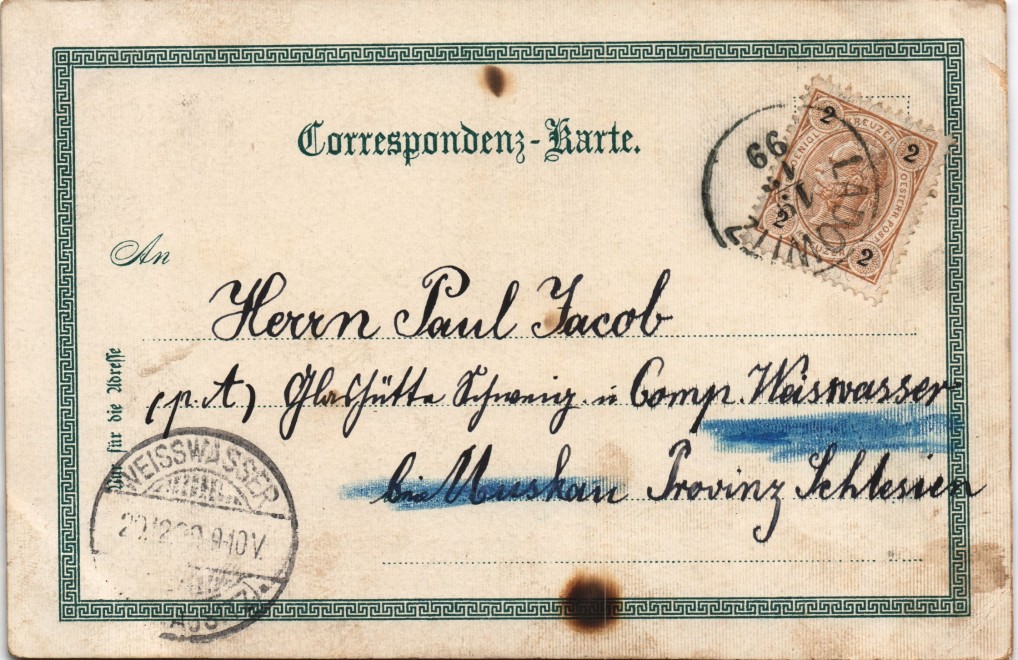 Correspondenz-Karte.
2 2 2 2
KREUZER
OESTERR. POST.
KREUZER
LADOWITZ
99
An
Herrn Paul Jacob
(p. A) Glashütte Schweig u Comp. Weiswasser
bei Muskau Provinz Schlesien
Nur für die Adresse
WEISSWASSER
9-10V.